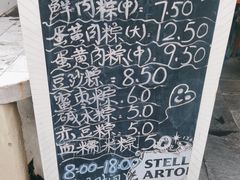 鲜肉粽(中) 7.50
蛋黄肉粽(大) 12.50
蛋黄肉粽(中) 9.50
豆沙粽 8.50
蜜枣粽 6.0
碱水粽 5.0
赤豆粽 5.0
血糯米粽 5.0
8:00-18:00
STELL
ARTOI